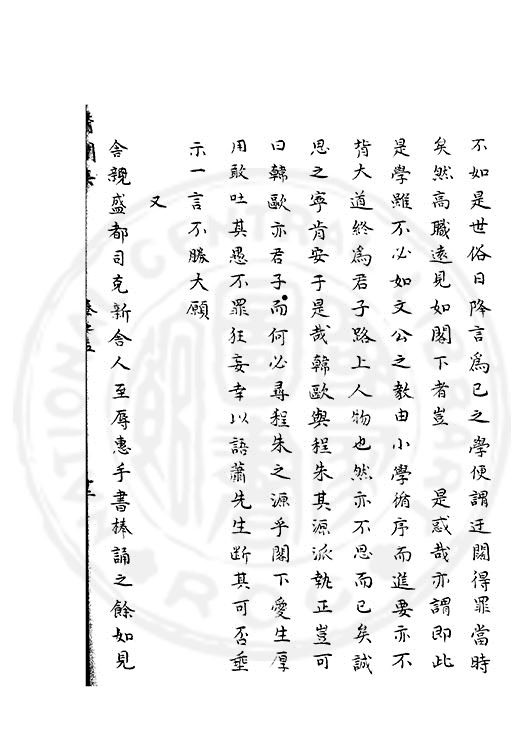 不如是世俗日降言為已之學便謂迂闊得罪當時
矣然高職遠見如閣下者豈　是惑哉亦謂即此
是學雖不必如文公之教由小學循序而進要亦不
背大道終為君子路上人物也然亦不思而已矣誠
思之寧肯安于是哉韓歐與程朱其源派孰正豈可
曰韓歐亦君子而何必尋程朱之源乎閣下愛生厚
用敢吐其愚不罪狂妄幸以語蕭先生斷其可否垂
示一言不勝大願
又
舍親盛都司克新舍人至辱惠手書捧誦之餘如見